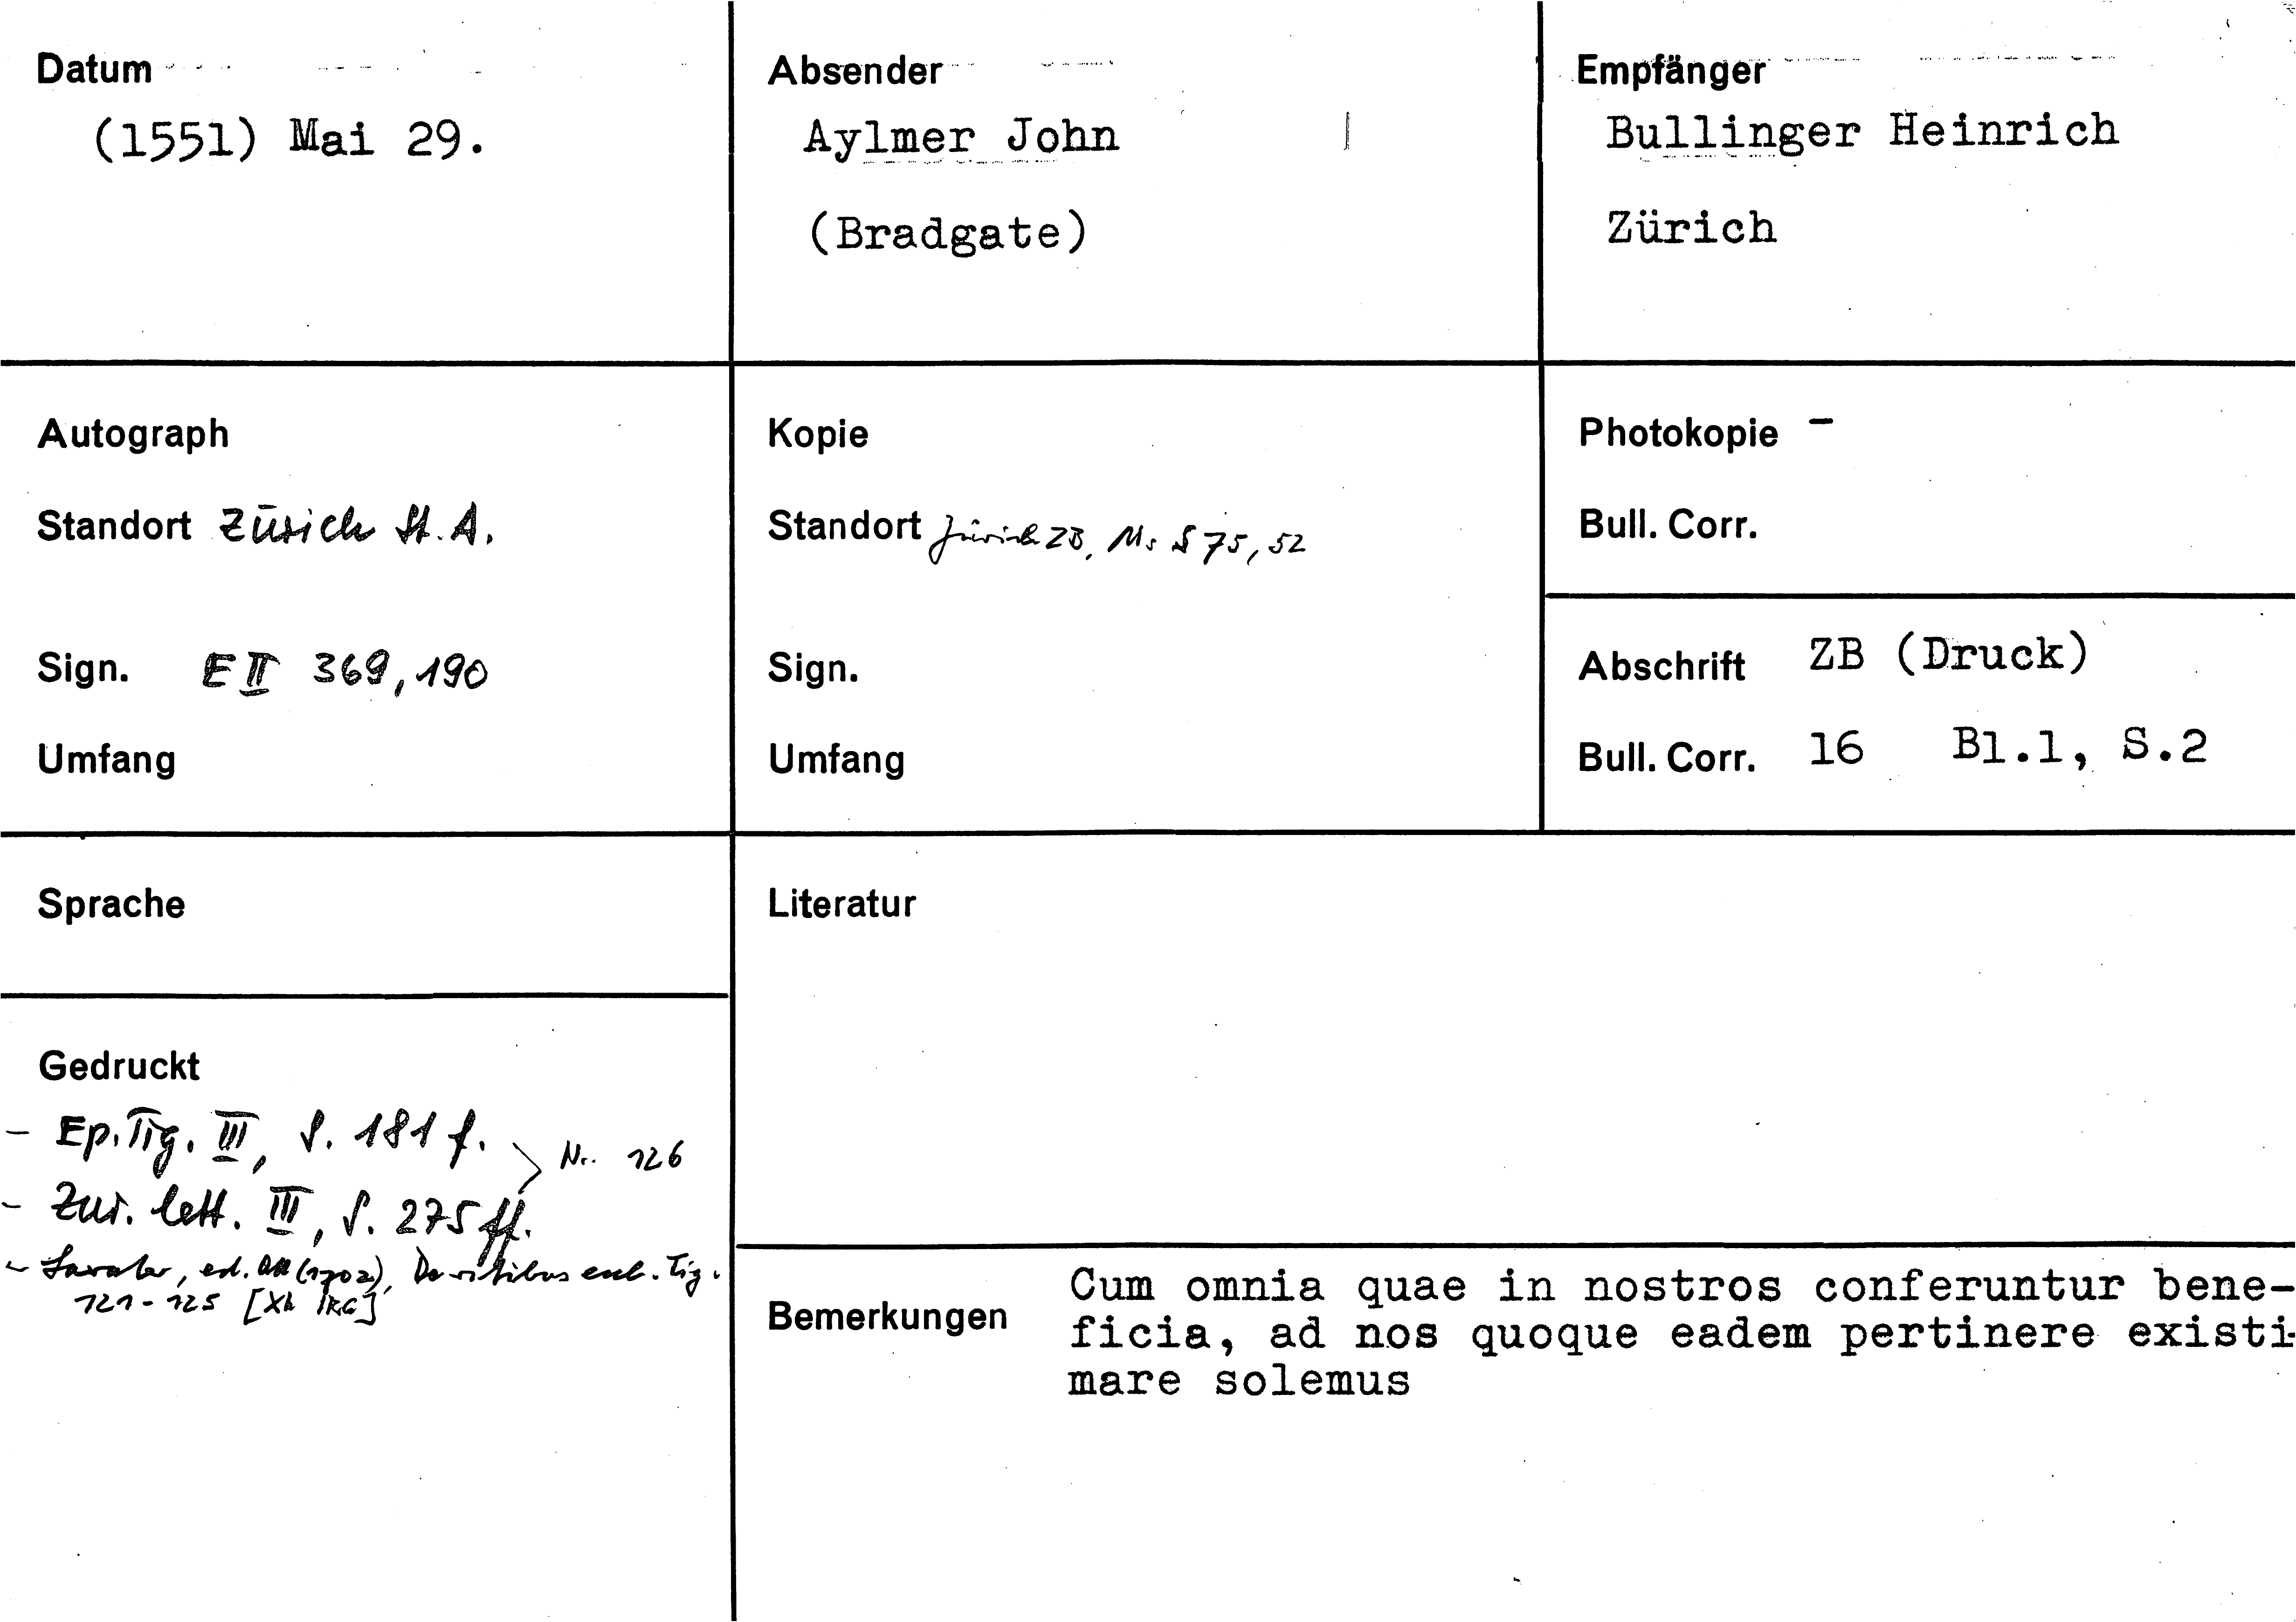 Datum
(1551) Mai 29.
Absender
Aylmer John
(Bradgate)
Empfänger
Bullinger Heinrich
Zürich
Autograph
Standort Zürich St. A.
Sign. E II 369,190
Umfang
Kopie
Standort Zürich ZB, Ms S 75, 52
Sign.
Umfang
Photokopie -
Bull. Corr.
Abschrift ZB (Druck)
Bull. Corr. 16 Bl.1, S.2
Sprache
Gedruckt
- Ep. Tig. III, S. 181 f.
- Zur. lett. III, S. 275 ff.
Nr. 126
- Lavater, ed. Ott (1702), De ritibus eccl. Tig.
121-125 [Xk IRG]
Literatur
Bemerkungen
Cum omnia quae in nostros conferuntur bene-
ficia, ad nos quoque eadem pertinere existi-
mare solemus